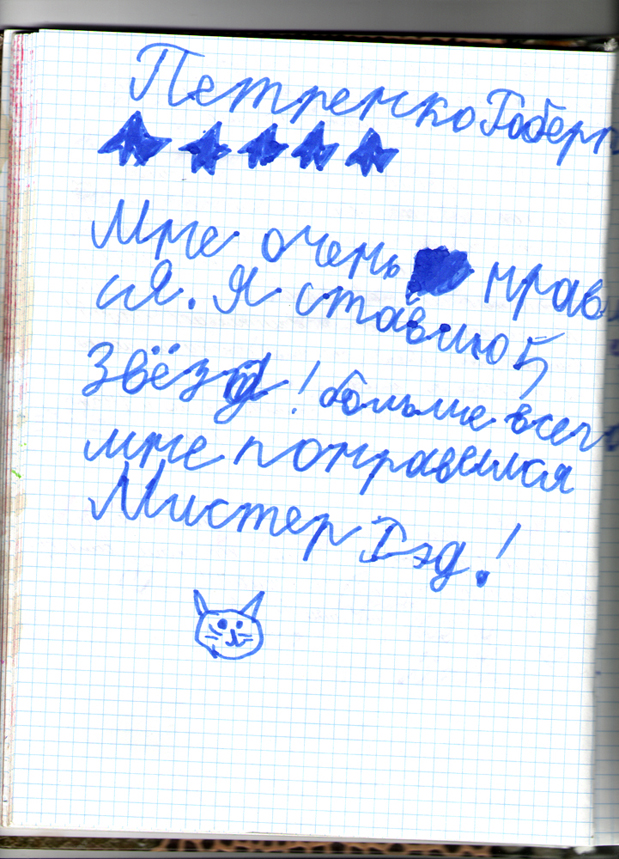 Петренко Роберт
Мне очень нрав
ся. Я ставлю 5
Звёзд! больше всего
мне понравился
Мистер